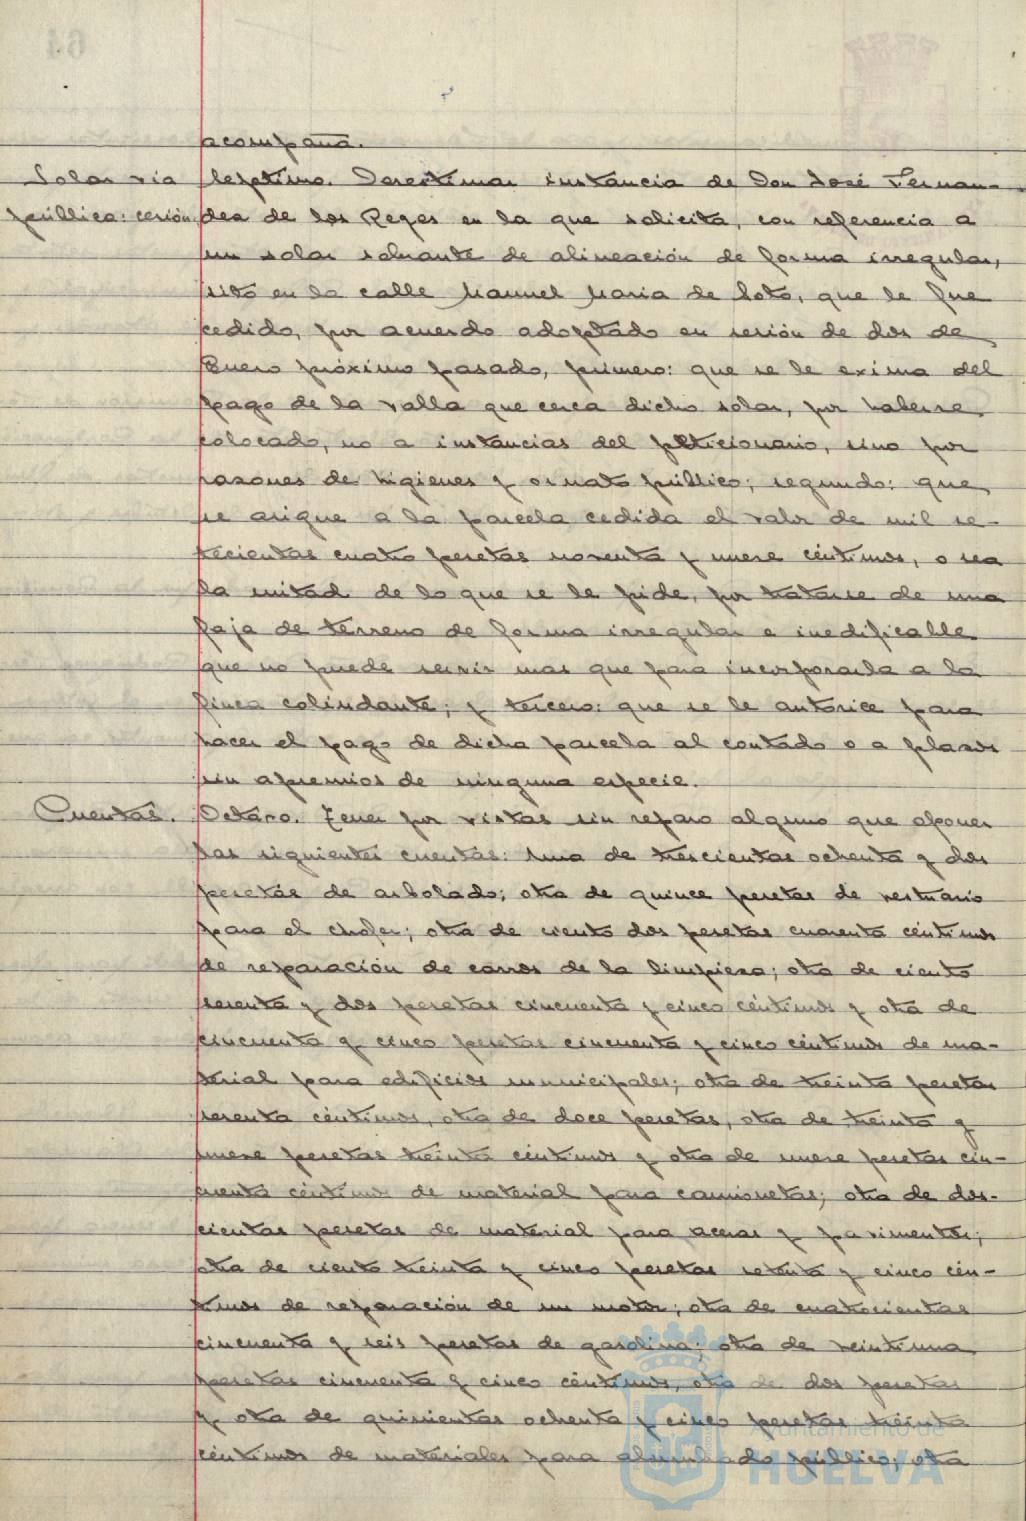 acompaña.
Solar vía
pública: cesión
Septimo. Desestimar instancia de Don José Fernan-
dez de los Reyes en la que solicita, con referencia a
un solar sobrante de alineación de forma irregular,
sito en la calle Manuel Maria de Soto, que le fue
cedido, por acuerdo adoptado en sesión de dos de
Enero próximo pasado, primero: que se le exima del
pago de la valla que cerca dicho solar, por haberse
colocado, no a instancias del peticionario, sino por
razones de higienes y ornato público; segundo: que
se asigne a la parcela cedida el valor de mil se-
tecientas cuatro pesetas noventa y nueve céntimos, o sea
la mitad de lo que se le pide, por tratarse de una
faja de terreno de forma irregular e inedificable
que no puede servir mas que para incorporarla a la
finca colindante; y tercero: que se le autorice para
hacer el pago de dicha parcela al contado o a plazos
sin apremios de ninguna especie.
Cuentas.
Octavo. Tener por vistas sin reparo alguno que oponer
las siguientes cuentas: una de trescientas ochenta y dos
pesetas de arbolado; otra de quince pesetas de vestuario
para el chofer; otra de ciento dos pesetas cuarenta céntimos
de reparación de carros de la limpieza; otra de ciento
sesenta y dos pesetas cincuenta y cinco céntimos y otra de
cincuenta y cinco pesetas cincuenta y cinco céntimos de ma-
terial para edificios municipales; otra de treinta pesetas
sesenta céntimos, otra de doce pesetas, otra de treinta y
nueve pesetas treinta céntimos y otra de nueve pesetas cin-
cuenta céntimos de material para camionetas; otra de dos-
cientas pesetas de material para aceras y pavimentos;
otra de ciento treinta y cinco pesetas setenta y cinco cén-
timos de reparación de un motor; otra de cuatrocientas
cincuenta y seis pesetas de gasolina; otra de veintiuna
pesetas cincuenta y cinco céntimos, otra de dos pesetas
y otra de quinientas ochenta y cinco pesetas treinta
céntimos de materiales para alumbrado público; otra
Ayuntamiento de
HUELVA